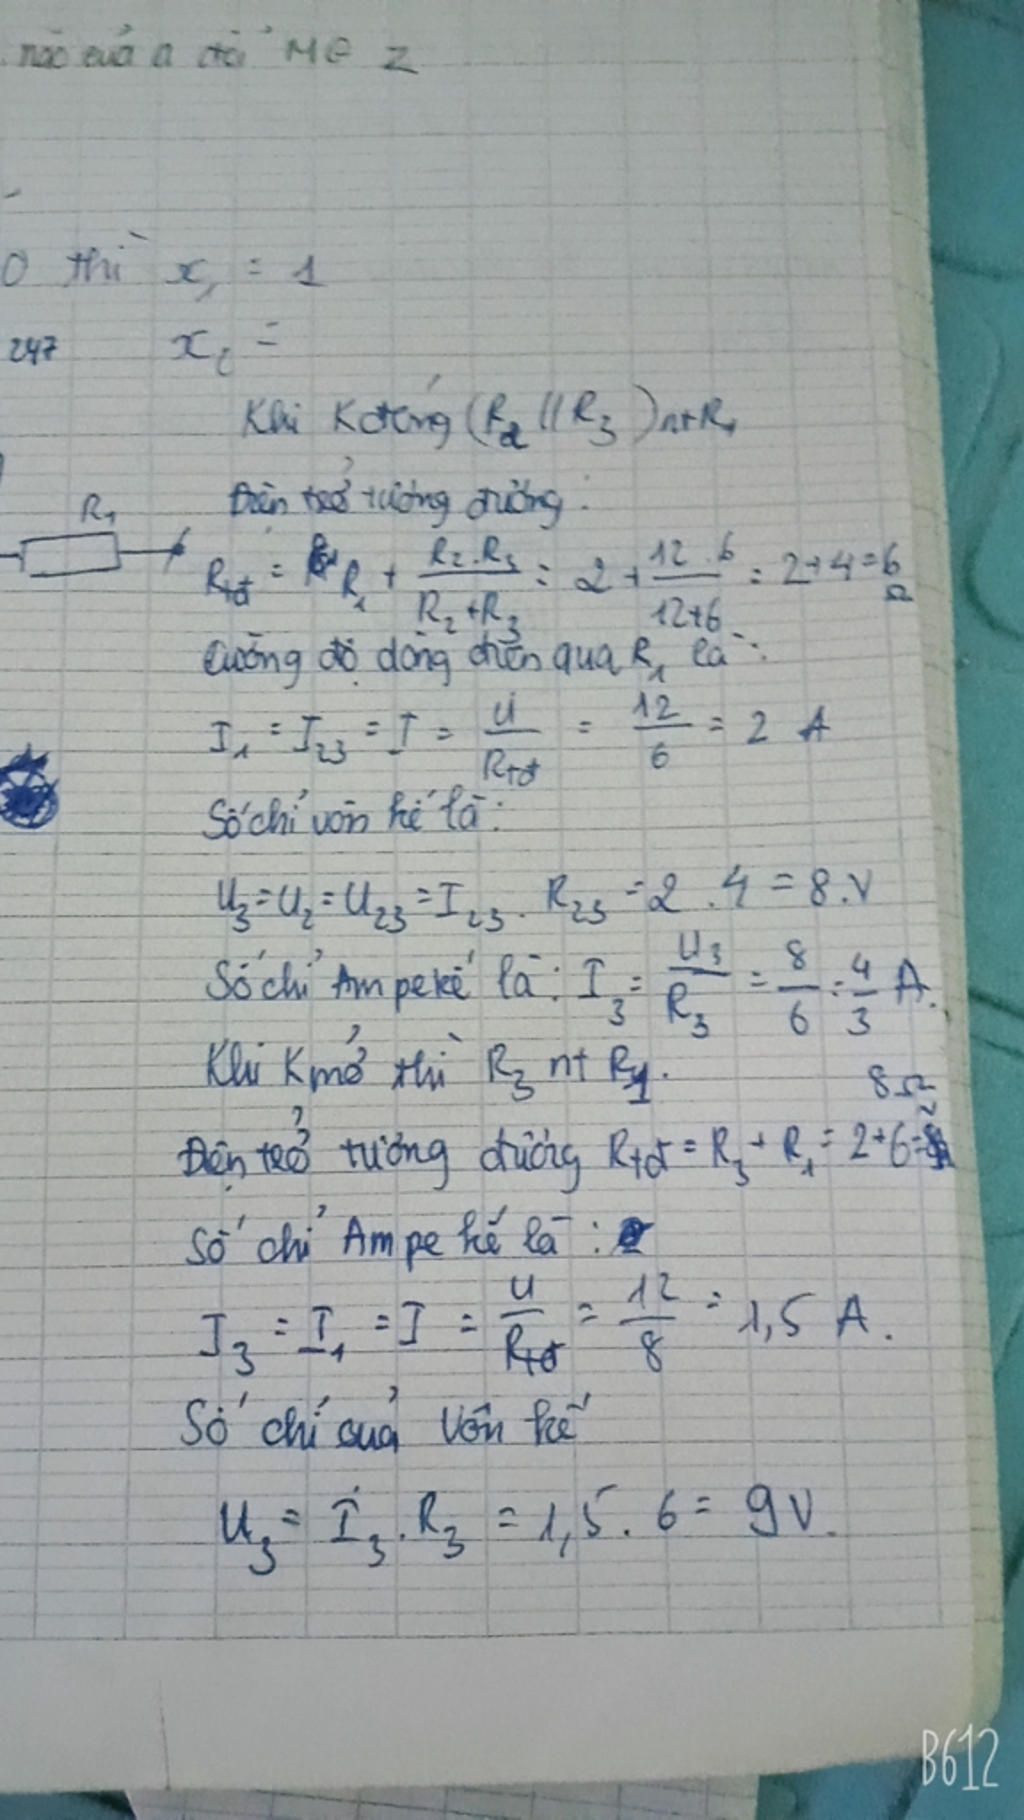 não của a đối MG Z
0 thì x₁ = 1
247 x₂ =
Khi K đóng (R₂ // R₃) nt R₁
Điện trở tương đương:
R₁
Rtđ = R₁ + R₂.R₃ / R₂+R₃ = 2 + 12.6 / 12+6 = 2+4=6 Ω
Cường độ dòng điện qua R₁ là:
I₁ = I₂₃ = I = U / Rtđ = 12 / 6 = 2 A
Số chỉ vôn kế là:
U₃=U₂=U₂₃=I₂₃. R₂₃ =2 .4 = 8.V
Số chỉ Ampe kế là: I₃ = U₃ / R₃ = 8 / 6 = 4 / 3 A.
Khi K mở thì R₃ nt R₁.
Điện trở tương đương Rtđ = R₃ + R₁ = 2+6= 8Ω
Số chỉ Ampe kế là:
I₃ = I₁ = I = U / Rtđ = 12 / 8 = 1,5 A.
Số chỉ của Vôn kế
U₃ = I₃.R₃ = 1,5. 6 = 9V.
B612